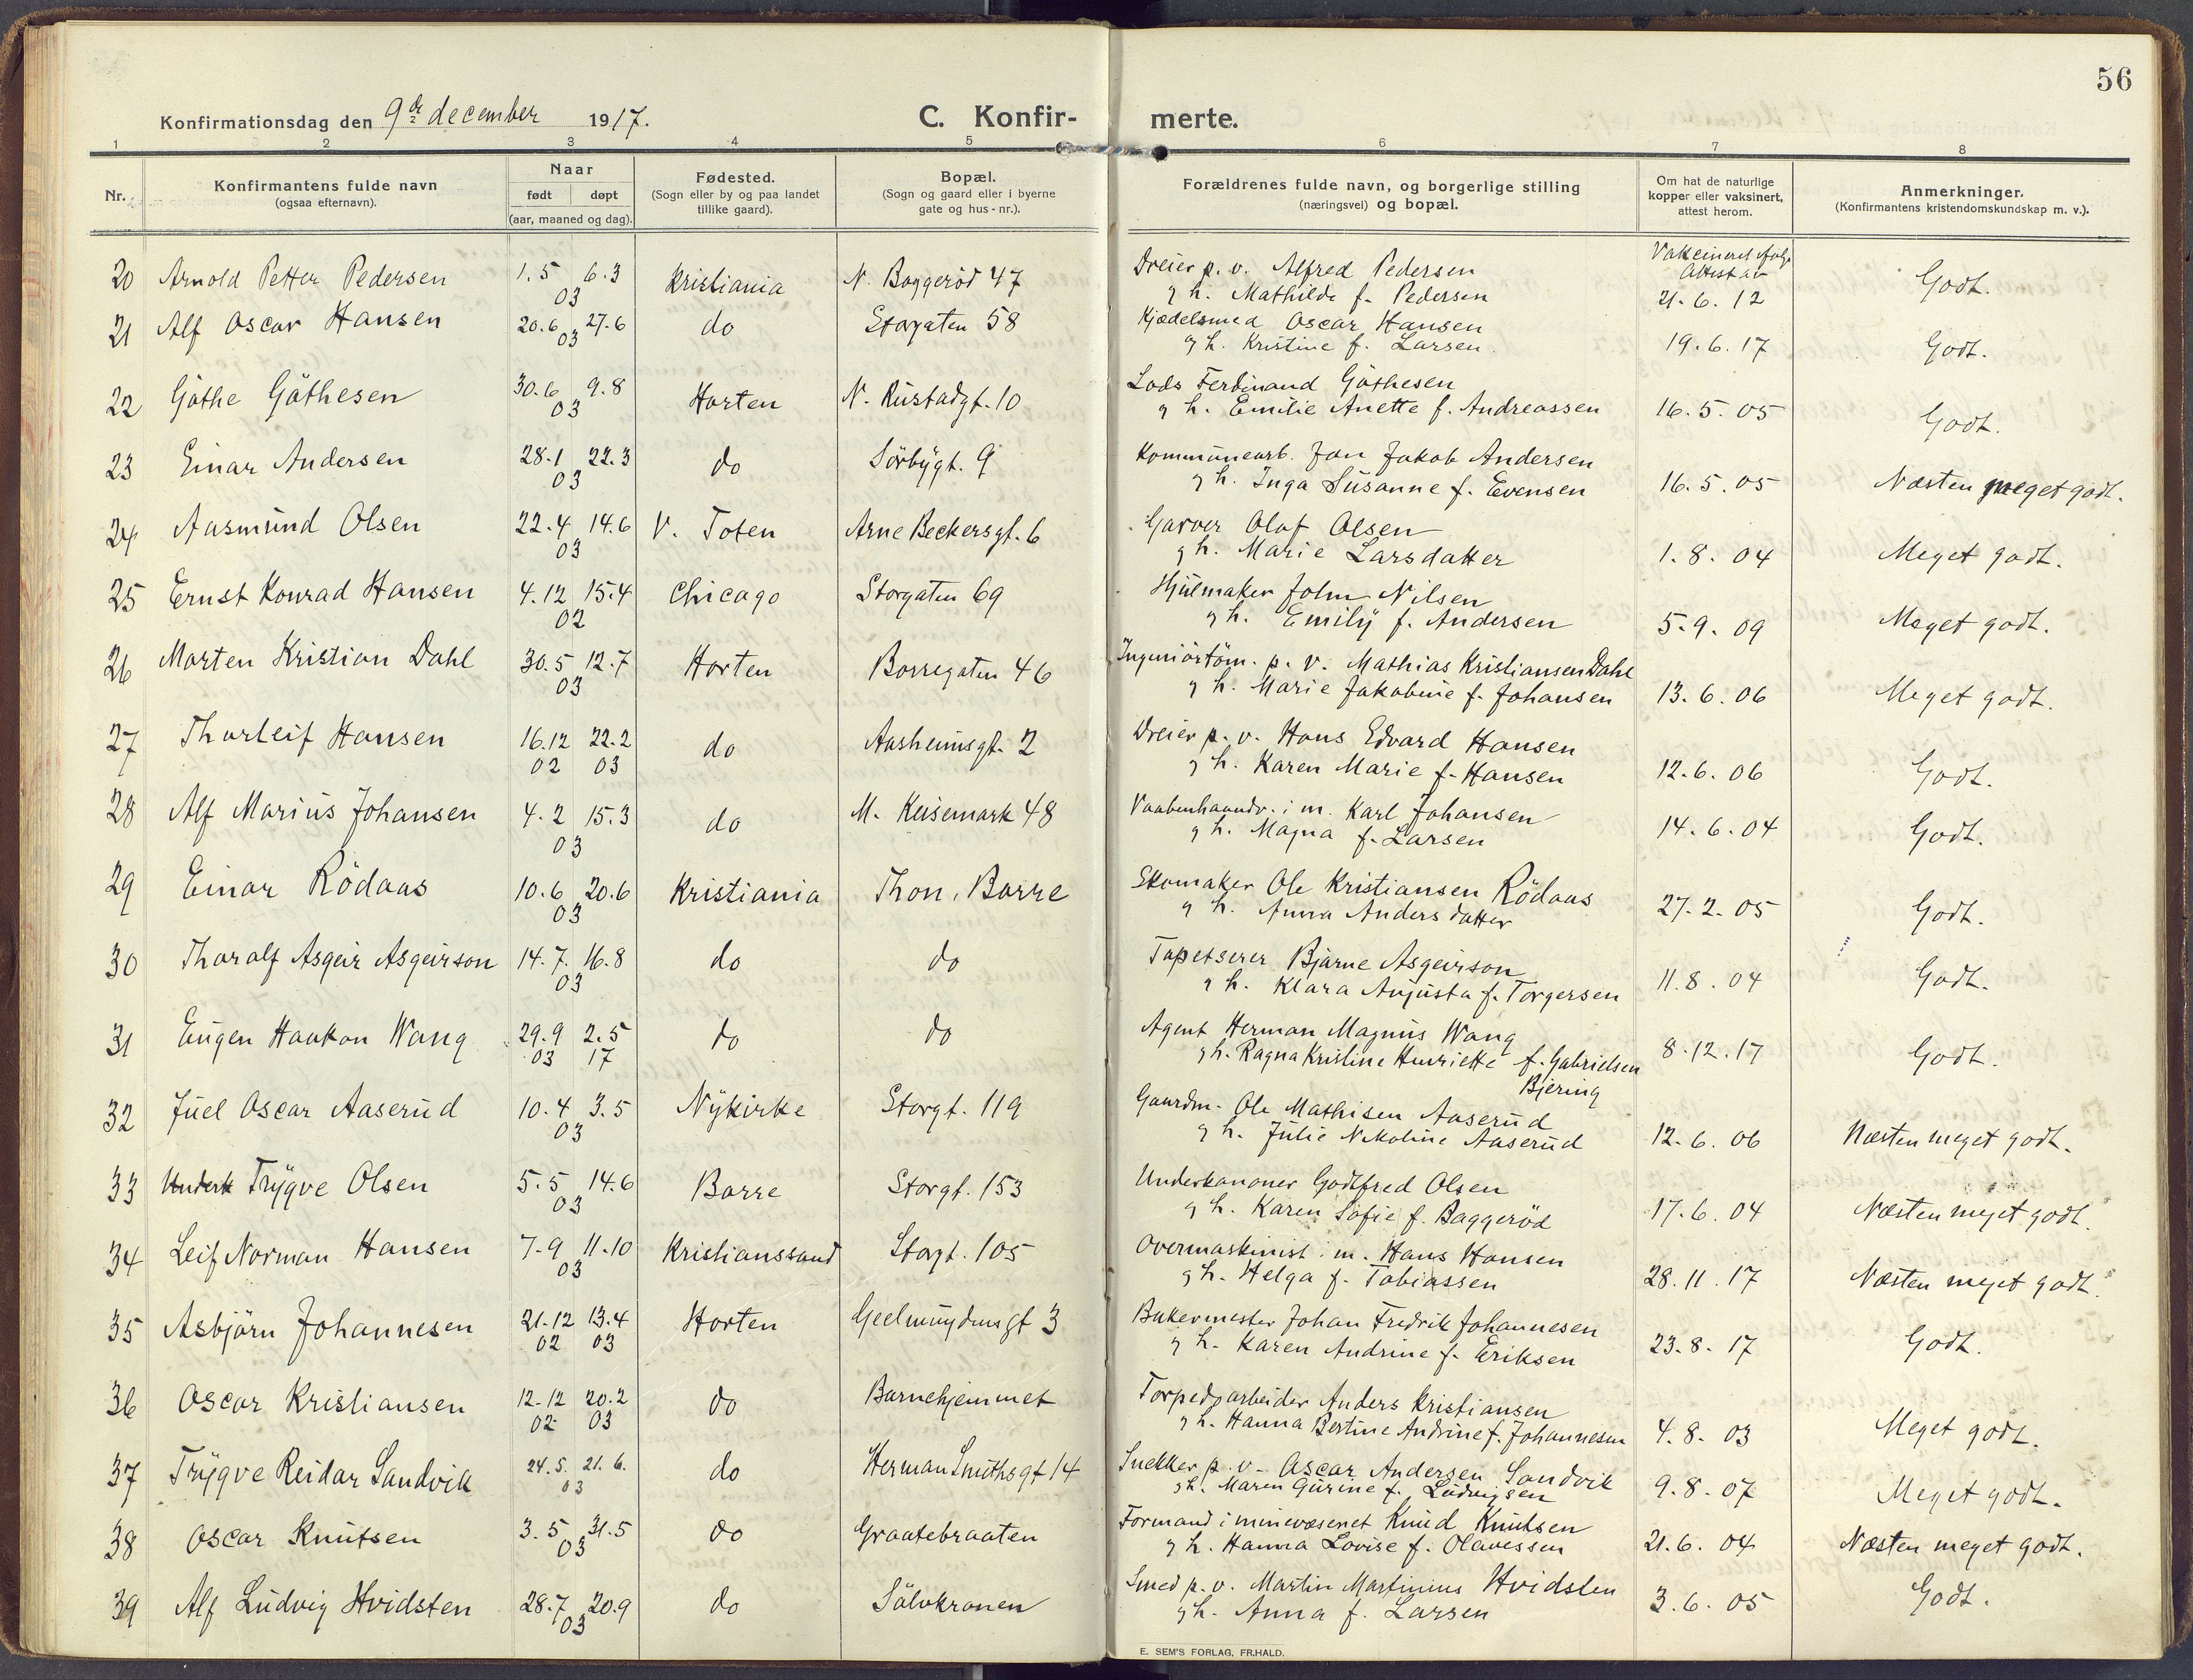 56
Konfirmationsdag den 9de december 1917. C. Konfir- merte.
1 2 3 4 5 6 7 8
Nr. Konfirmantens fulde navn (ogsaa efternavn). Naar født døpt (aar, maaned og dag). Fødested. (Sogn eller by og paa landet tillike gaard). Bopæl. (Sogn og gaard eller i byerne gate og hus-nr.). Forældrenes fulde navn, og borgerlige stilling (næringsvei) og bopæl. Om hat de naturlige kopper eller vaksinert, attest herom. Anmerkninger. (Konfirmantens kristendomskundskap m. v.).
20 Arnold Petter Pedersen 1.5 6.3 03 Kristiania N. Baggerød 47 Dreier p. v. Alfred Pedersen Attest av
g h. Mathilde f. Pedersen 21.6.12 Godt.
21 Alf Oscar Hansen 20.6 27.6 03 do Storgaten 58 Kjædelsmed Oscar Hansen
g h. Kristine f. Larsen 19.6.17 Godt.
22 Gøthe Gøthesen 30.6 9.8 03 Horten N. Rustadgt. 10 Lods Ferdinand Gøthesen
g h. Emilie Anette f. Andreassen 16.5.05 Godt.
23 Einar Andersen 28.1 22.3 03 do Sörbygt. 9 Kommunearb. Jan Jakob Andersen
g h. Inga Susanne f. Evensen 16.5.05 Næsten meget godt.
24 Aasmund Olsen 22.4 14.6 03 V. Toten Arne Beckersgt. 6 Garver Olaf Olsen
g h. Marie Larsdatter 1.8.04 Meget godt.
25 Ernst Konrad Hansen 4.12 15.4 02 Chicago Storgaten 69 Hjulmaker John Nilsen
g h. Emily f. Andersen 5.9.09 Meget godt.
26 Marten Kristian Dahl 30.5 12.7 03 Horten Borregaten 46 Ingeniørtöm. p. v. Mathias Kristiansen Dahl
g h. Marie Jakobine f. Johansen 13.6.06 Meget godt.
27 Thorleif Hansen 16.12 02 22.2 03 do Aasheimsgt. 2 Dreier p. v. Hans Edvard Hansen
g h. Karen Marie f. Hansen 12.6.06 Godt.
28 Alf Marius Johansen 4.2 15.3 03 do M. Keisemark 48 Vaabenhaandv. i m. Karl Johansen
g h. Magna f. Larsen 14.6.04 Godt.
29 Einar Rödaas 10.6 20.6 03 Kristiania Thon, Borre Skomaker Ole Kristiansen Rödaas
g h. Anna Andersdatter 27.2.05 Godt.
30 Thoralf Asgeir Asgeirson 14.7. 16.8 03 do do Tapetserer Bjarne Asgeirson
g h. Klara Augusta f. Torgersen 11.8.04 Godt.
31 Eugen Haakon Wang 29.9 03 2.5 17 do do Agent Herman Magnus Wang
g h. Ragna Kristine Henriette f. Gabrielsen Bjering 8.12.17 Godt.
32 Juel Oscar Aaserud 10.4 3.5 03 Nykirke Storgt. 119 Gaardm. Ole Mathisen Aaserud
g h. Julie Nikoline Aaserud 12.6.06 Næsten meget godt.
33 Trygve Olsen 5.5 14.6 03 Borre Storgt. 153 Underkanoner Godtfred Olsen
g h. Karen Sofie f. Baggeröd 17.6.04 Næsten meget godt.
34 Leif Norman Hansen 7.9 11.10 03 Kristianssand Storgt. 105 Overmaskinist i m. Hans Hansen
g h. Helga f. Tobiassen 28.11.17 Næsten meget godt.
35 Asbjörn Johannesen 21.12 02 13.4 03 Horten Geelmuydensgt 3 Bakermester Johan Fredrik Johannesen
g h. Karen Andrine f. Eriksen 23.8.17 Godt.
36 Oscar Kristiansen 12.12 02 20.2 03 do Barnehjemmet Torpedoarbeider Anders Kristiansen
g h. Hanna Bertine Andrine f. Johannesen 4.8.03 Meget godt.
37 Trygve Reidar Sandvik 24.5. 21.6. 03 do Herman Smithsgt 14 Snekker p. v. Oscar Andersen Sandvik
g h. Maren Gurine f. Ludvigsen 9.8.07 Meget godt.
38 Oscar Knutsen 3.5 31.5 03 do Graatebraaten Formand i minevæsenet Knud Knutsen
g h. Hanna Lovise f. Olavessen 21.6.04 Næsten meget godt.
39 Alf Ludvig Hvidsten 28.7 20.9 03 do Sölvkronen Smed p. v. Martin Martinius Hvidsten
g h. Anna f. Larsen 3.6.05 Godt.
E. SEM'S FORLAG, FR.HALD.